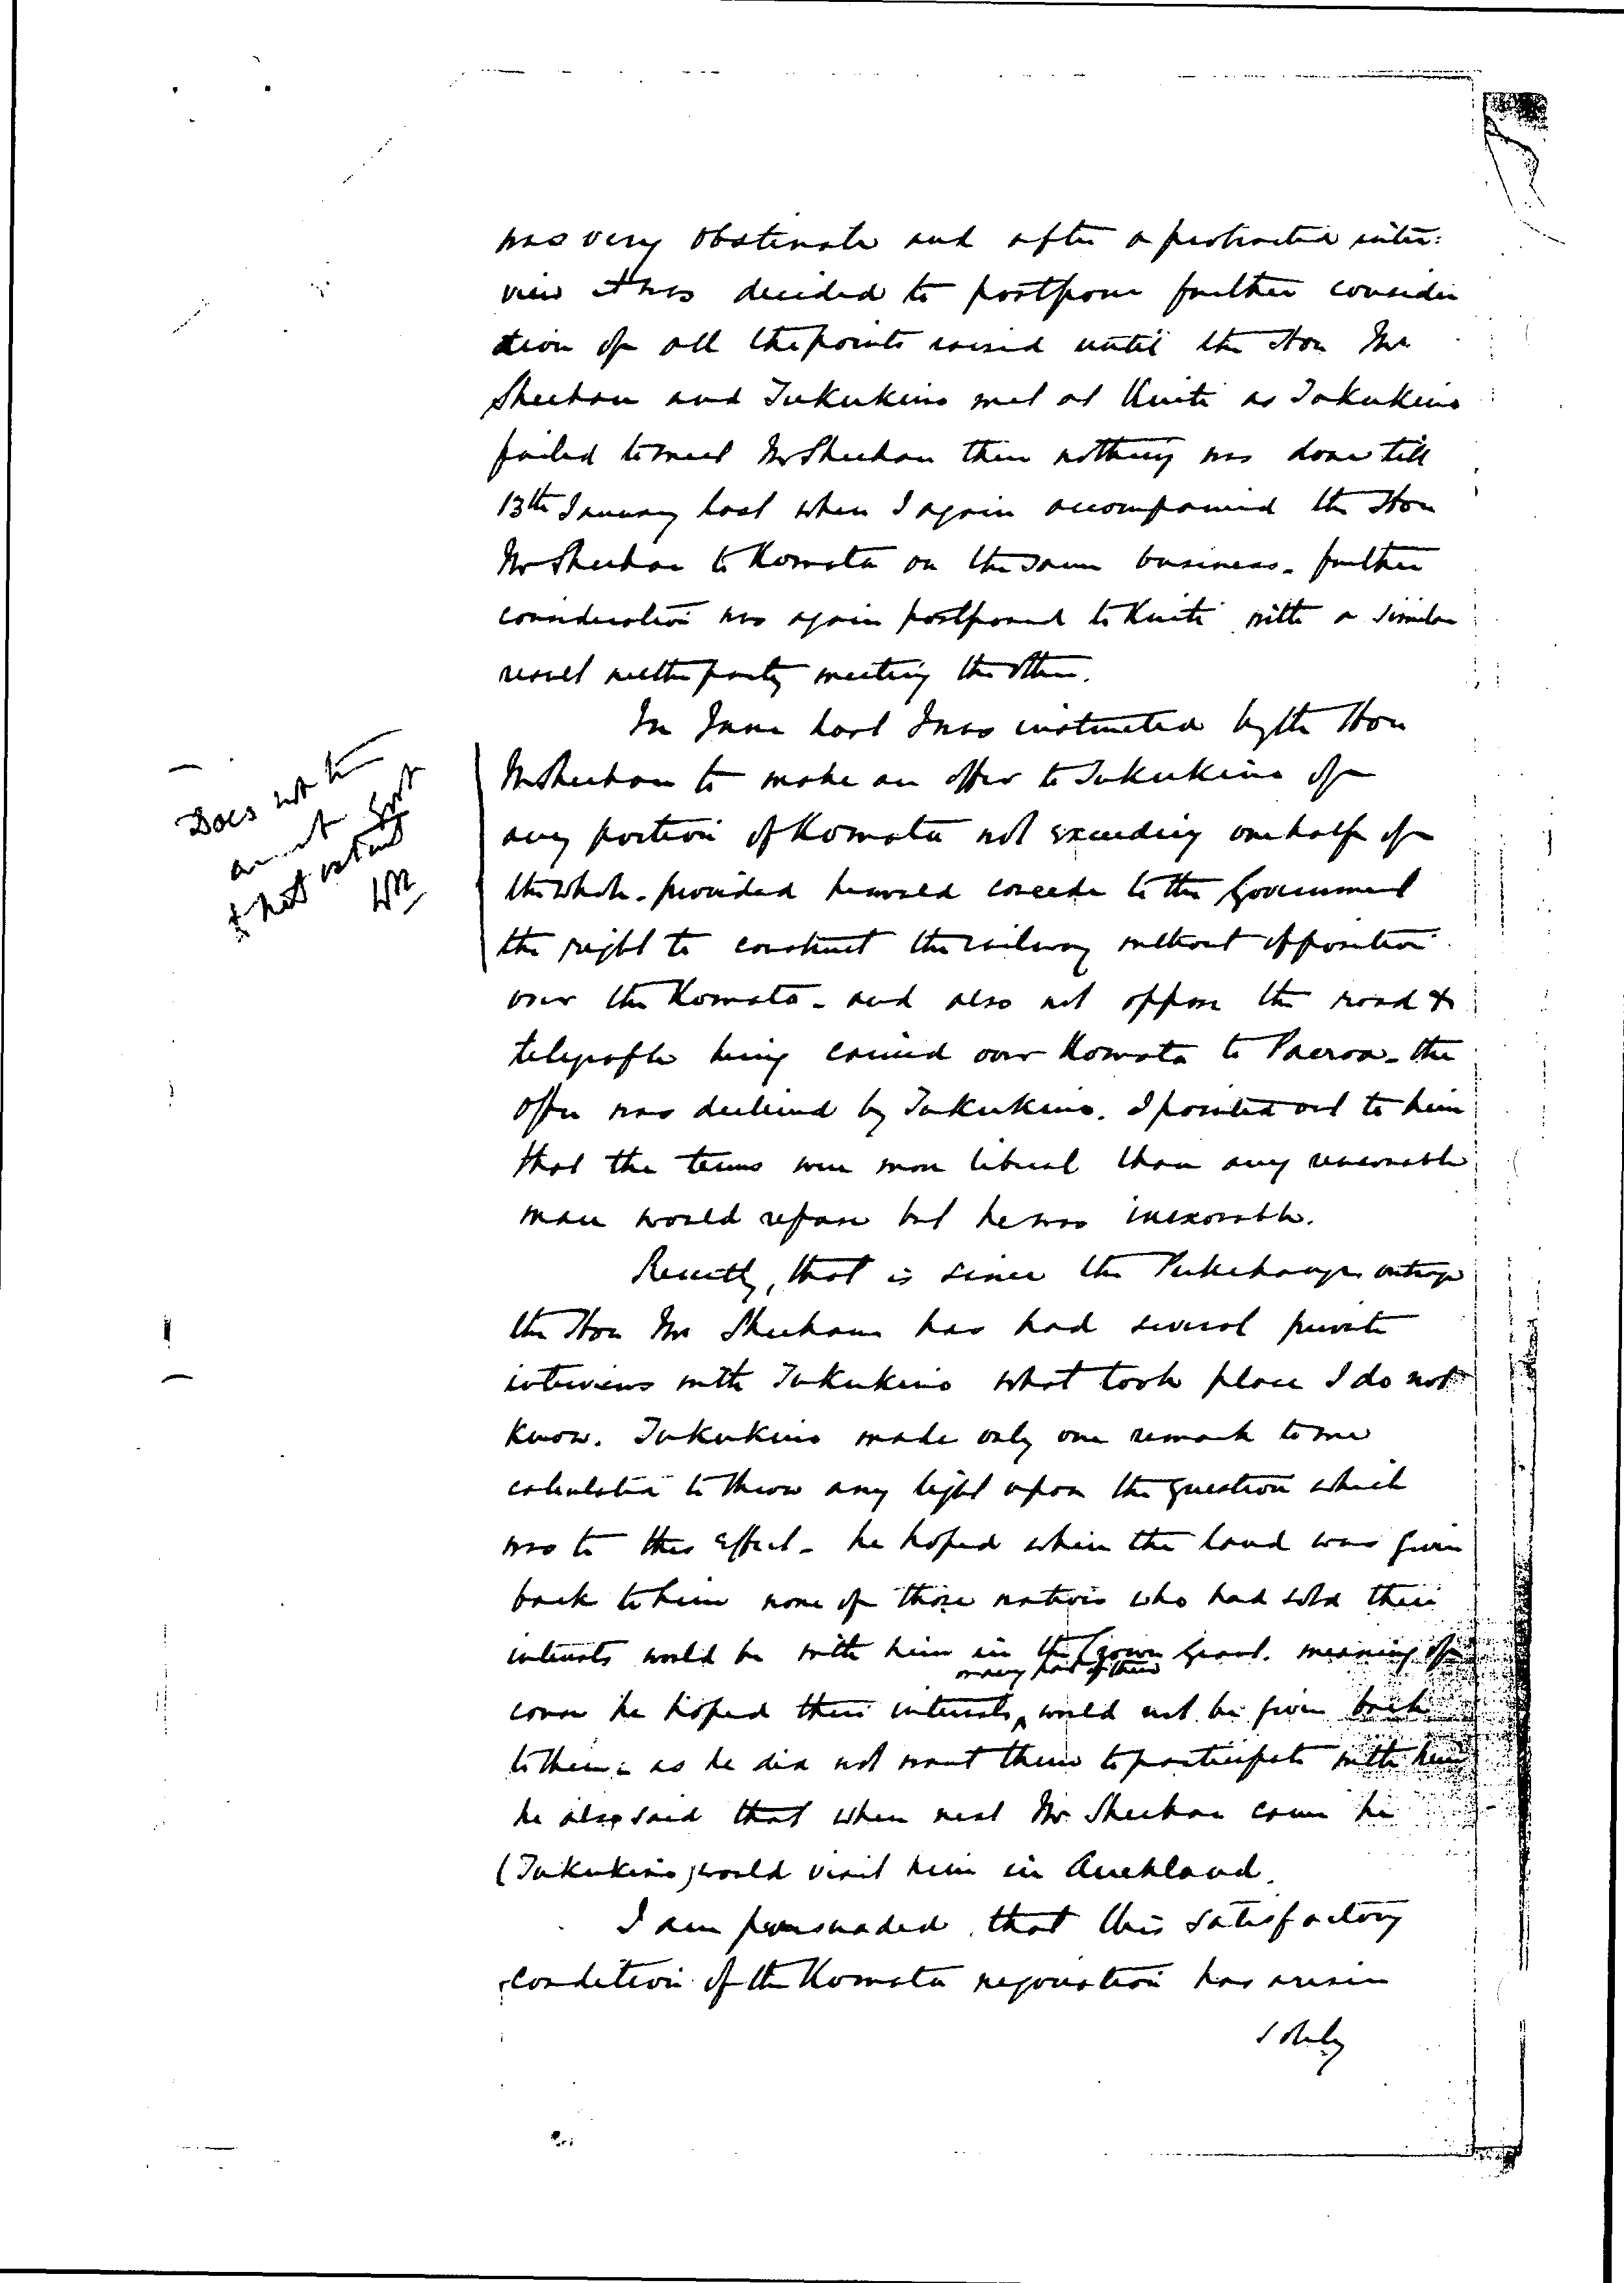 was very obstinate and after a protracted inter:
view it was decided to postpone further consider
ation of all the points raised until the Hon Mr
Sheehan and Tukukino met at Kuiti as Tukukino
failed to meet Mr Sheehan then nothing was done till
13th January last when I again accompanied the Hon
Mr Sheehan to Komata on the same business - further
consideration was again postponed to Kuiti with a similar
result neither party meeting the other.
In June last I was instructed by the Hon
Mr Sheehan to make an offer to Tukukino of
any portion of Komata not exceeding one half of
the whole - provided he would concede to the Government
the right to construct the railway without opposition
over the Komata - and also not oppose the road &
telegraph being carried over Komata to Paeroa - the
offer was declined by Tukukino. I pointed out to him
that the terms were more liberal than any reasonable
man would refuse but he was inexorable.
Recently, that is since the Pukehange outrage
the Hon Mr Sheehan has had several private
interviews with Tukukino what took place I do not
know. Tukukino made only one remark to me
calculated to throw any light upon the question which
was to this effect - he hoped when the land was given
back to him none of those natives who had sold their
interests would be with him in the Crown Grant. meaning of
course he hoped their interests would not be given back
to them - as he did not want them to participate with him
he also said that when next Mr Sheehan came he
(Tukukino) would visit him in Auckland.
I am persuaded that this satisfactory
condition of the Komata negotiation has arisen
solely
Does not